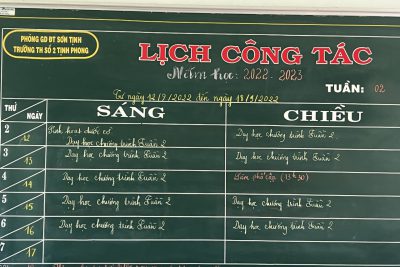 PHÒNG GD ĐT SƠN TỊNH
TRƯỜNG TH SỐ 2 TỊNH PHONG
LỊCH CÔNG TÁC
Năm học: 2022-2023
TUẦN: 02
Từ ngày 12/9/2022 đến ngày 18/9/2022
THỨ
NGÀY
SÁNG
CHIỀU
2
12
Sinh hoạt dưới cờ
Dạy học chương trình Tuần 2
Dạy học chương trình Tuần 2
3
13
Dạy học chương trình Tuần 2
Dạy học chương trình Tuần 2
4
14
Dạy học chương trình Tuần 2
phổ cập (13h30)
5
15
Dạy học chương trình Tuần 2
Dạy học chương trình Tuần 2
6
16
Dạy học chương trình Tuần 2
Dạy học chương trình Tuần 2
7
17